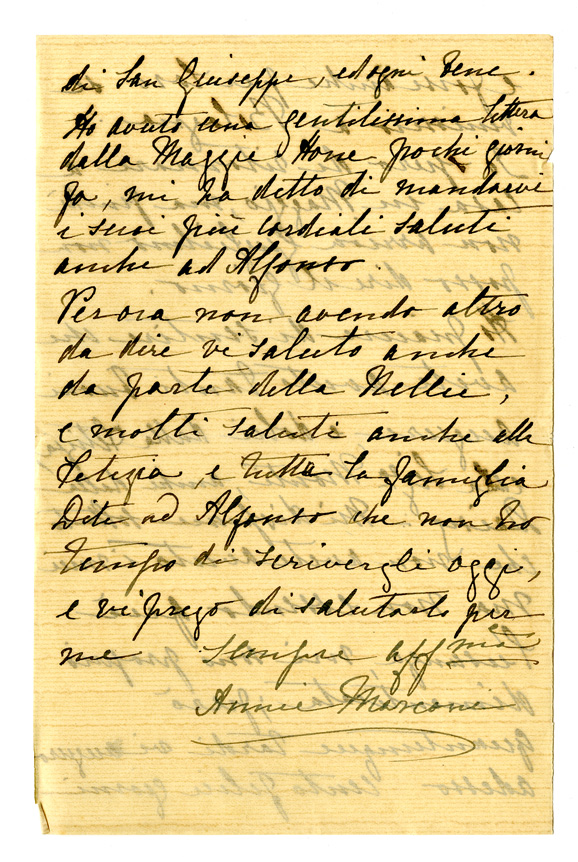 di San Giuseppe, ed ogni bene.
Ho avuto una gentilissima lettera
dalla Maggie Hone pochi giorni
fa, mi ha detto di mandarvi
i suoi più cordiali saluti
anche ad Alfonso
Per ora non avendo altro
da dire vi saluto anche
da parte della Nellie,
e molti saluti anche alla
Letizia, e tutta la famiglia
Dite ad Alfonso che non ho
tempo di scrivergli oggi,
e vi prego di salutarlo per
me Sempre aff.ma
Annie Marconi